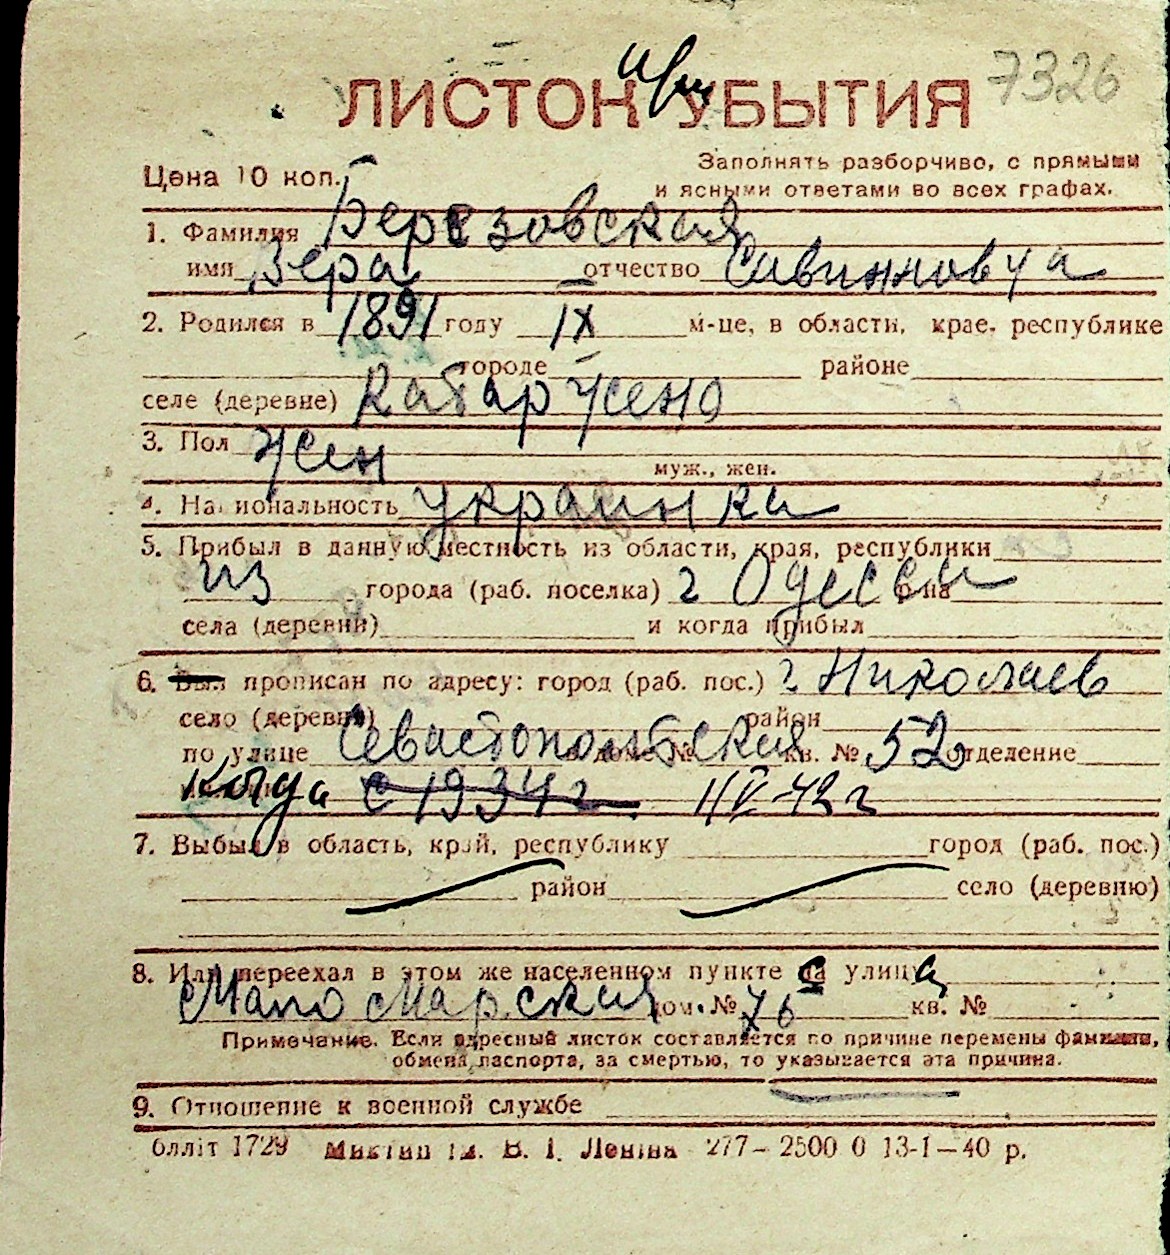 7326
ЛИСТОК УБЫТИЯ
Цена 10 коп.
Заполнять разборчиво, с прямыми
и ясными ответами во всех графах.
1. Фамилия Березовская
имя Вера отчество Савинновча
2. Родился в 1891 году IX м-це, в области, крае, республике
городе районе
селе (деревне) Катаржено
3. Пол жен муж., жен.
4. Национальность украинка
5. Прибыл в данную местность из области, края, республики
из города (раб. поселка) г Одессы р-на
села (деревни) и когда прибыл
6. Был прописан по адресу: город (раб. пос.) г. Николаев
село (деревня) район
по улице Севастопольская дом № кв. № 52 отделение
Когда с 1934 г. 1/IV-42 г
7. Выбыл в область, край, республику город (раб. пос.)
район село (деревню)
8. Или переехал в этом же населенном пункте са улица
Мало Марская дом. № 76 кв. №
Примечание. Если адресный листок составляется по причине перемены фамилии,
обмена паспорта, за смертью, то указывается эта причина.
9. Отношение к военной службе
блліт 1729 Миктип ім. В. І. Леніна 277—2500 0 13-I—40 р.